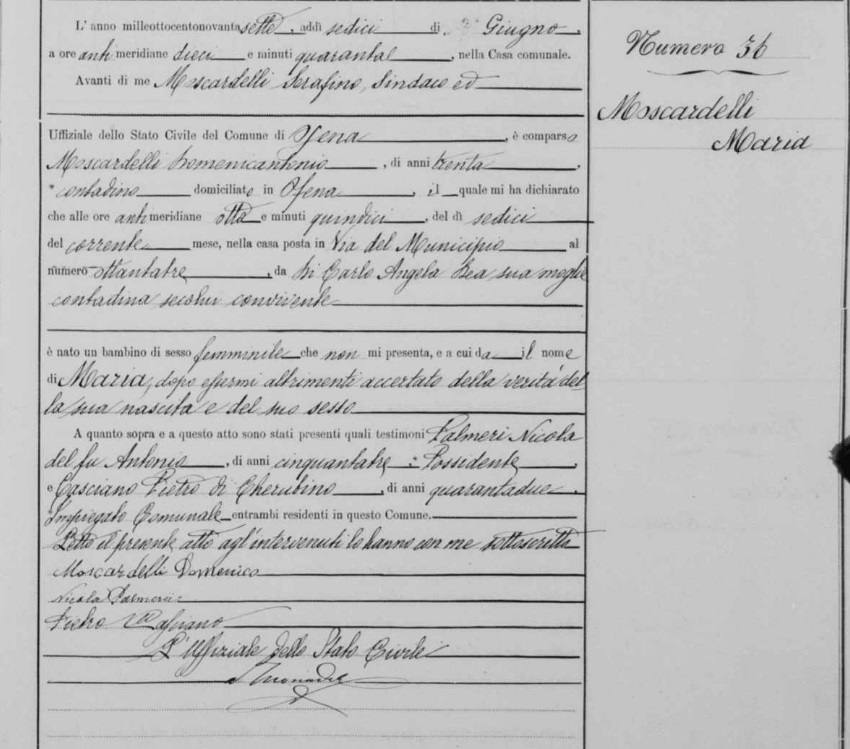 L'anno milleottocentonovantasette, addì sedici di Giugno,
a ore antimeridiane dieci e minuti quaranta, nella Casa comunale.
Avanti di me Moscardelli Serafino, Sindaco ed
Uffiziale dello Stato Civile del Comune di Ofena, è comparso
Moscardelli Domenicantonio, di anni trenta
contadino domiciliato in Ofena, il quale mi ha dichiarato
che alle ore antimeridiane otto e minuti quindici, del dì sedici
del corrente mese, nella casa posta in Via del Municipio al
numero ottantatre, da Di Carlo Angela Rea, sua moglie
contadina secolui convivente
è nato un bambino di sesso femminile che non mi presenta, e a cui da il nome
di Maria, dopo essermi altrimenti accertato della verità del
la sua nascita e del suo sesso
A quanto sopra e a questo atto sono stati presenti quali testimoni Palmeri Nicola
del fu Antonio, di anni cinquantatre, Possidente,
e Casciano Pietro di Cherubino, di anni quarantadue,
Impiegato Comunale entrambi residenti in questo Comune.
Letto il presente atto agl'intervenuti lo hanno con me sottoscritto
Moscardelli Domenico
Nicola Palmeri
Pietro Casciano
L'Uffiziale dello Stato Civile
Numero 36
Moscardelli
Maria